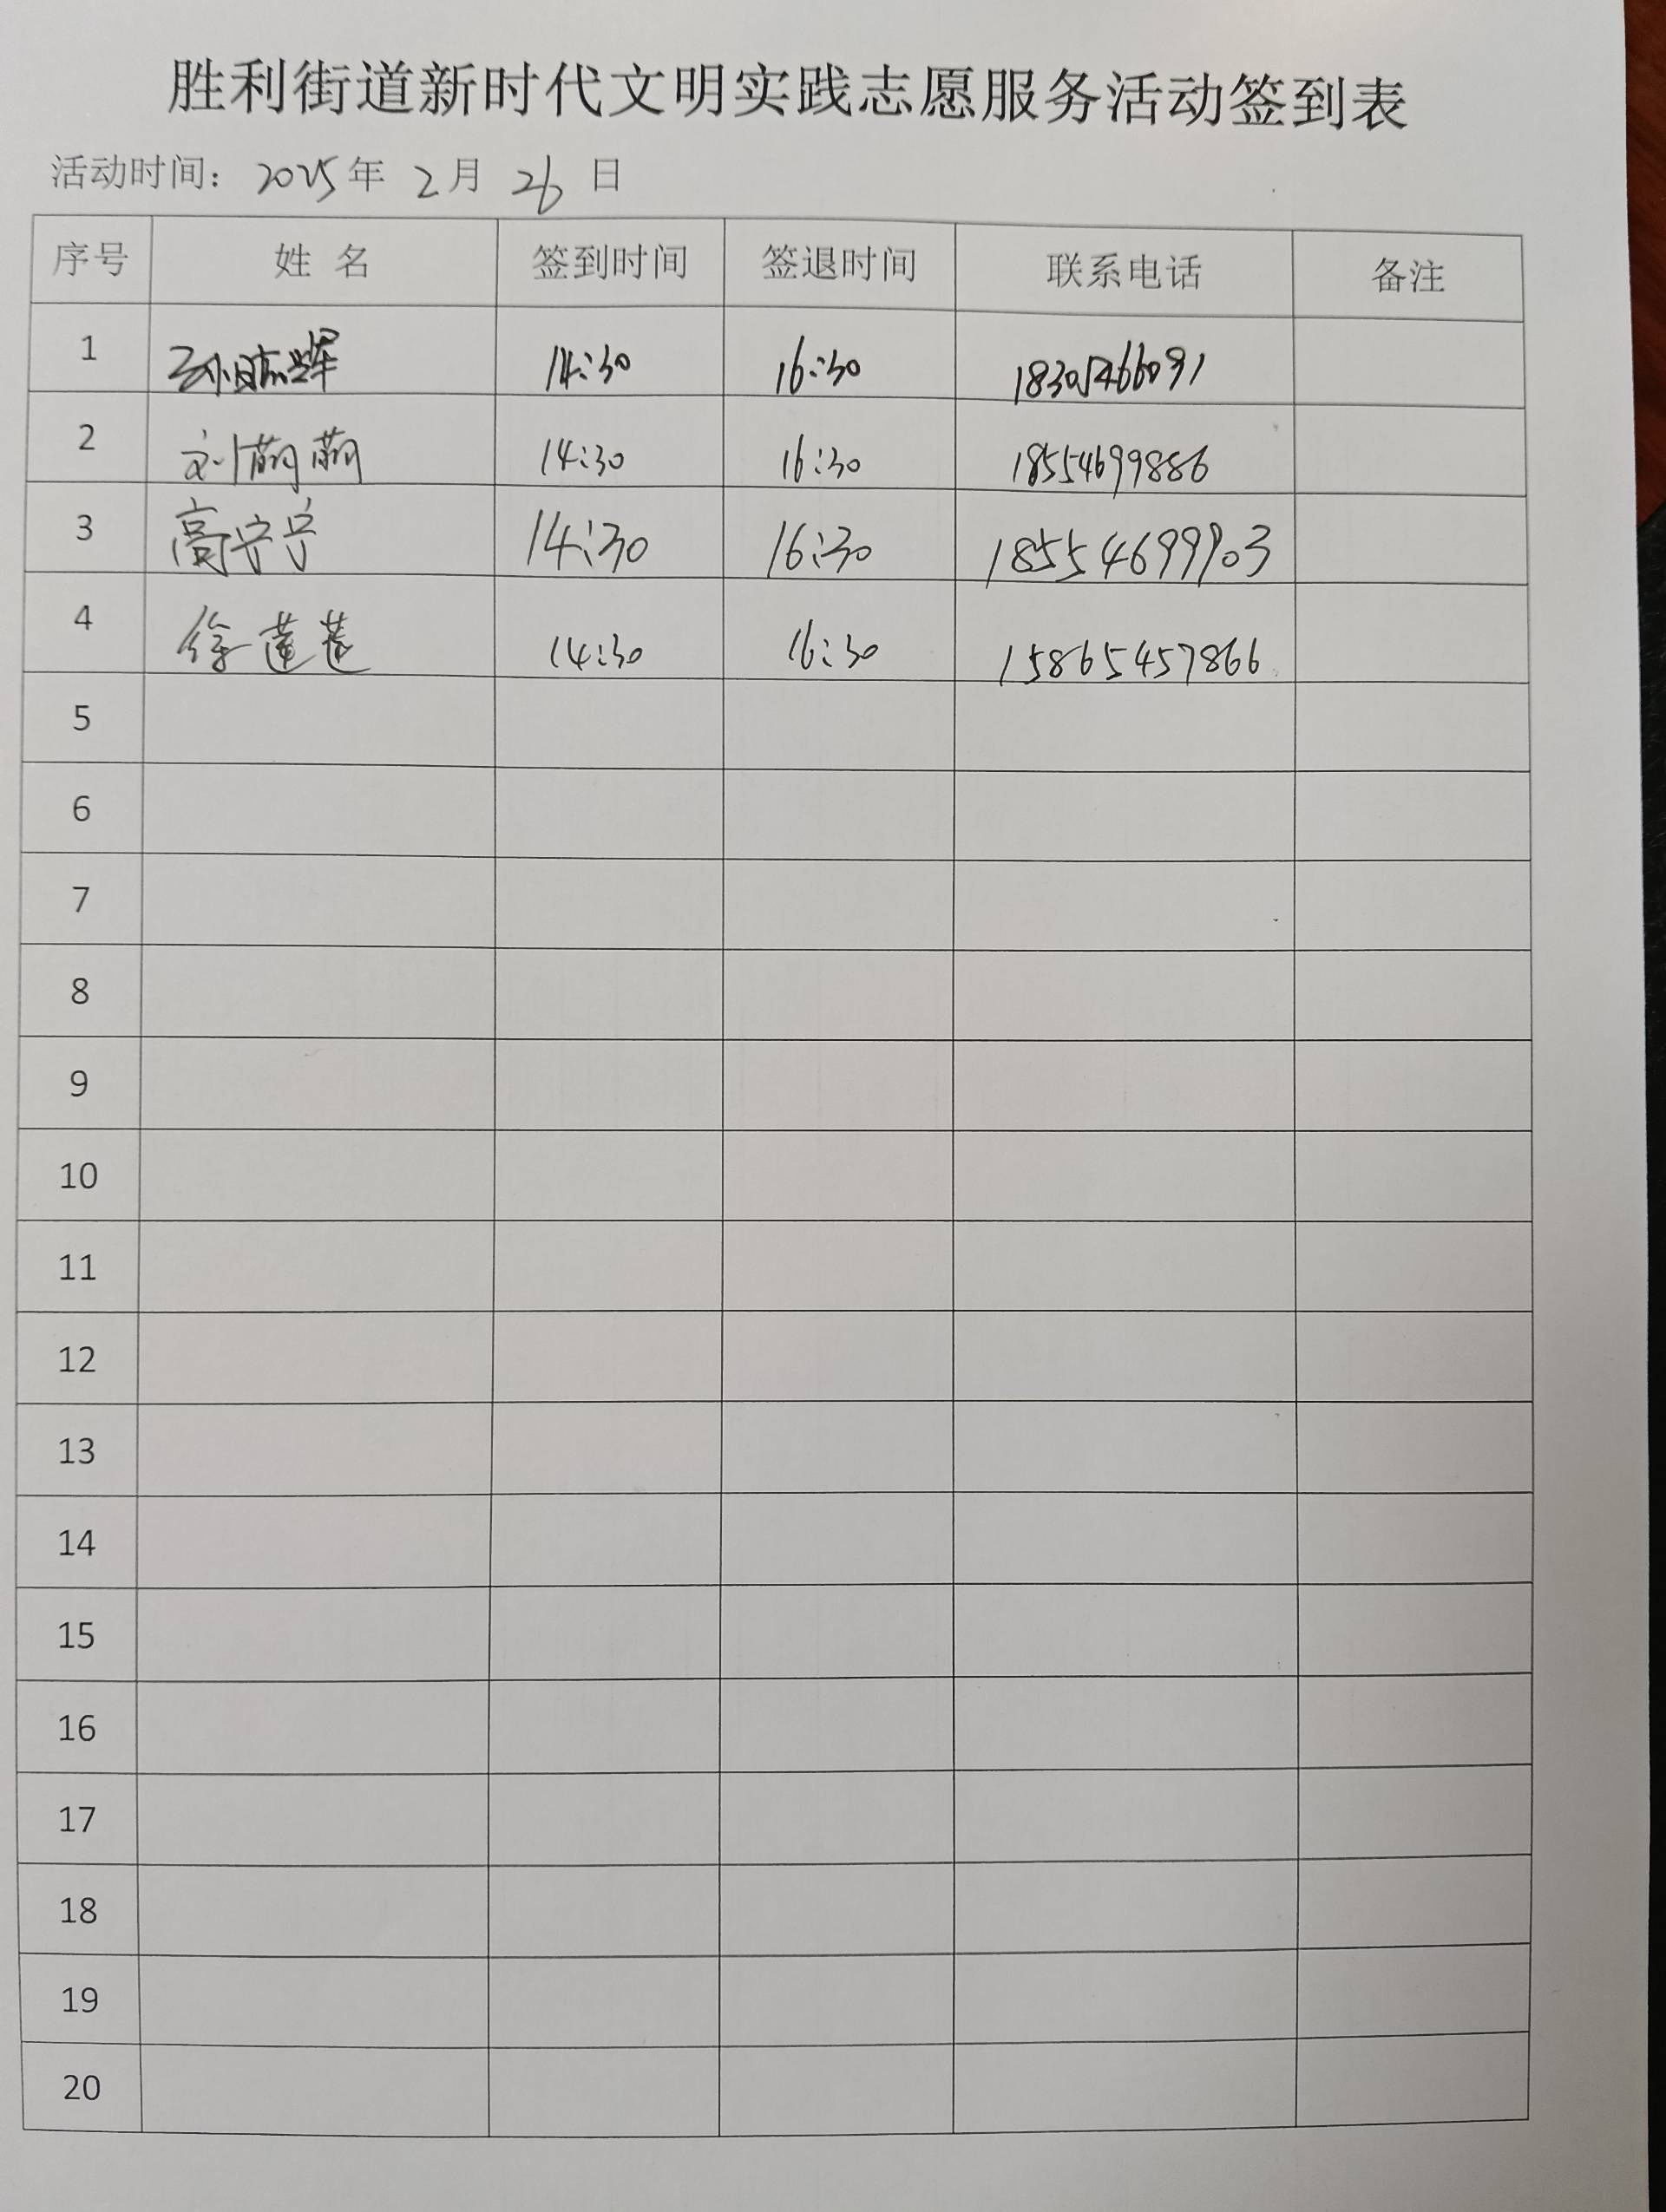 胜利街道新时代文明实践志愿服务活动签到表
活动时间：2025年 2月 26 日
序号 姓 名 签到时间 签退时间 联系电话 备注
1 孙晓辉 14:30 16:30 18305466091
2 刘萌萌 14:30 16:30 18554699886
3 高宁宁 14:30 16:30 18554699903
4 徐莲莲 14:30 16:30 15865457866
5
6
7
8
9
10
11
12
13
14
15
16
17
18
19
20